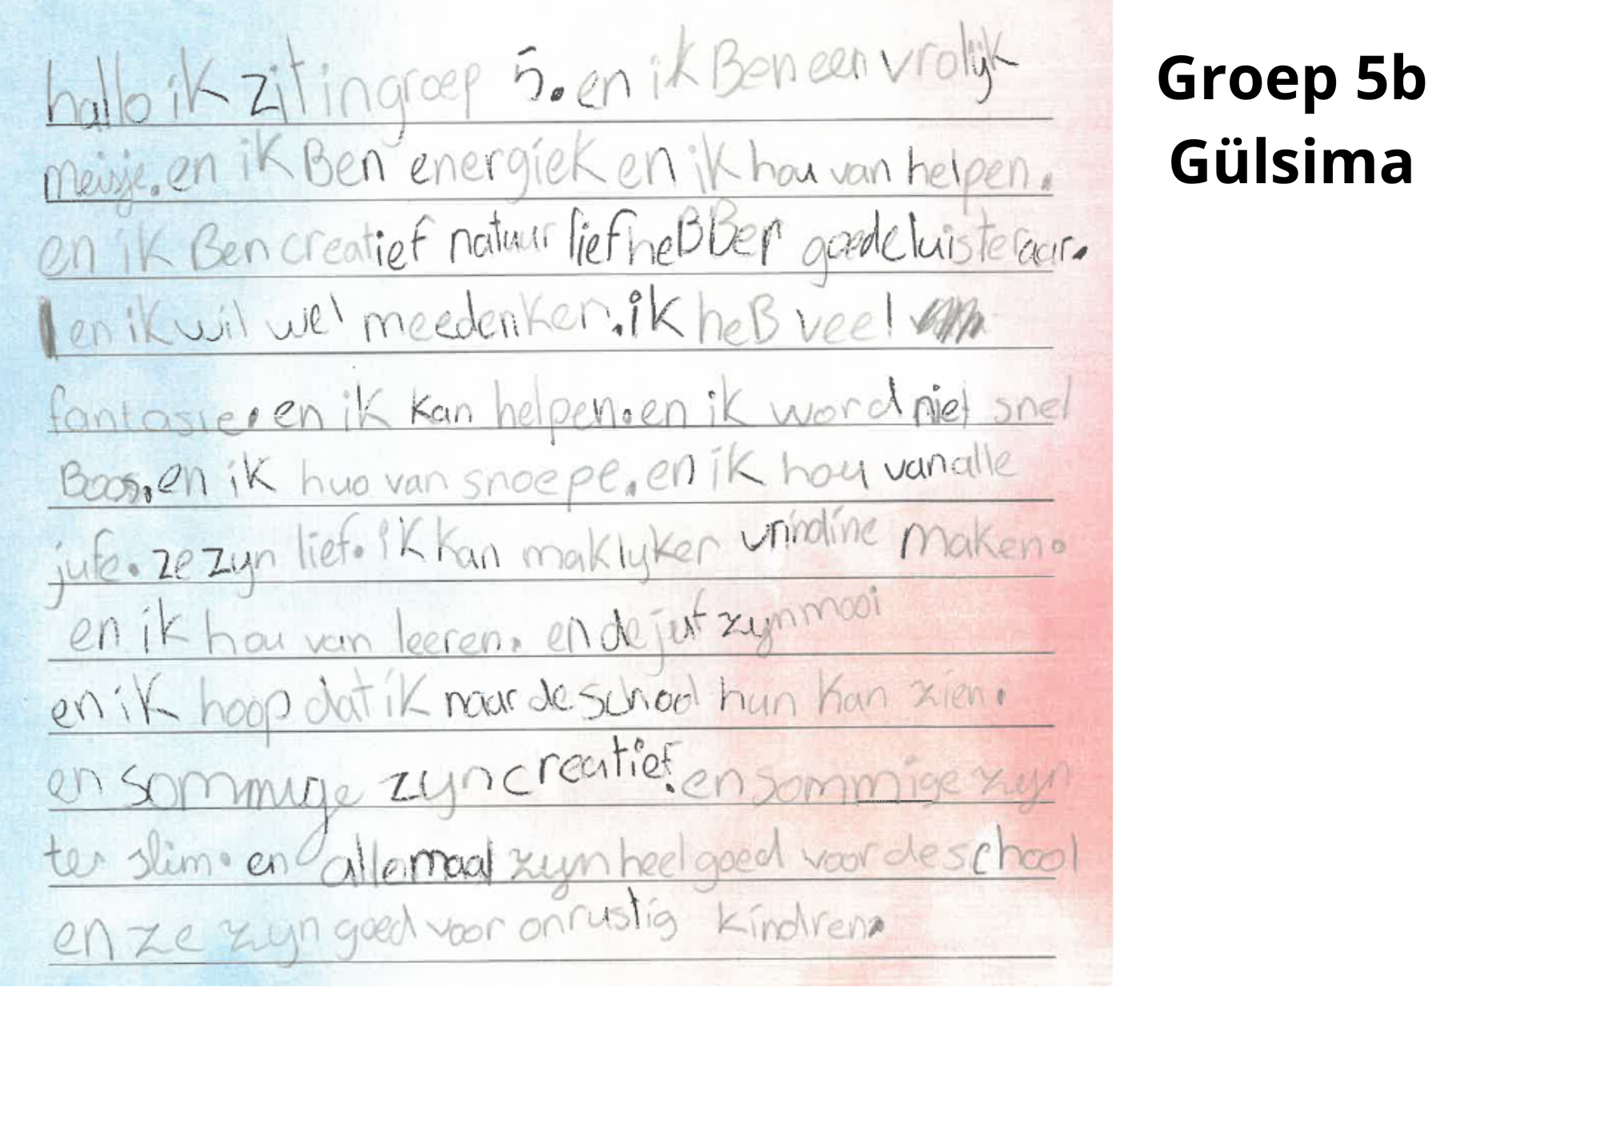 hallo ik zit in groep 5. en ik Ben een vrolijk
meisje. en ik Ben energiek en ik hou van helpen.
en ik Ben creatief natuur liefheBBer goede luisteraar.
en ik wil wel meedenken. ik heB veel
fantasie. en ik kan helpen. en ik word niet snel
Boos. en ik huo van snoepe. en ik hou van alle
jufe. ze zyn lief. ik kan maklyker vrindine maken.
en ik hou van leeren. en de juf zyn mooi
en ik hoop dat ik naar de school hun kan zien.
en sommige zyn creatief. en sommige zyn
slim. en allemaal zyn heel goed voor de school
en ze zyn goed voor onrustig kindren.
Groep 5b
Gülsima